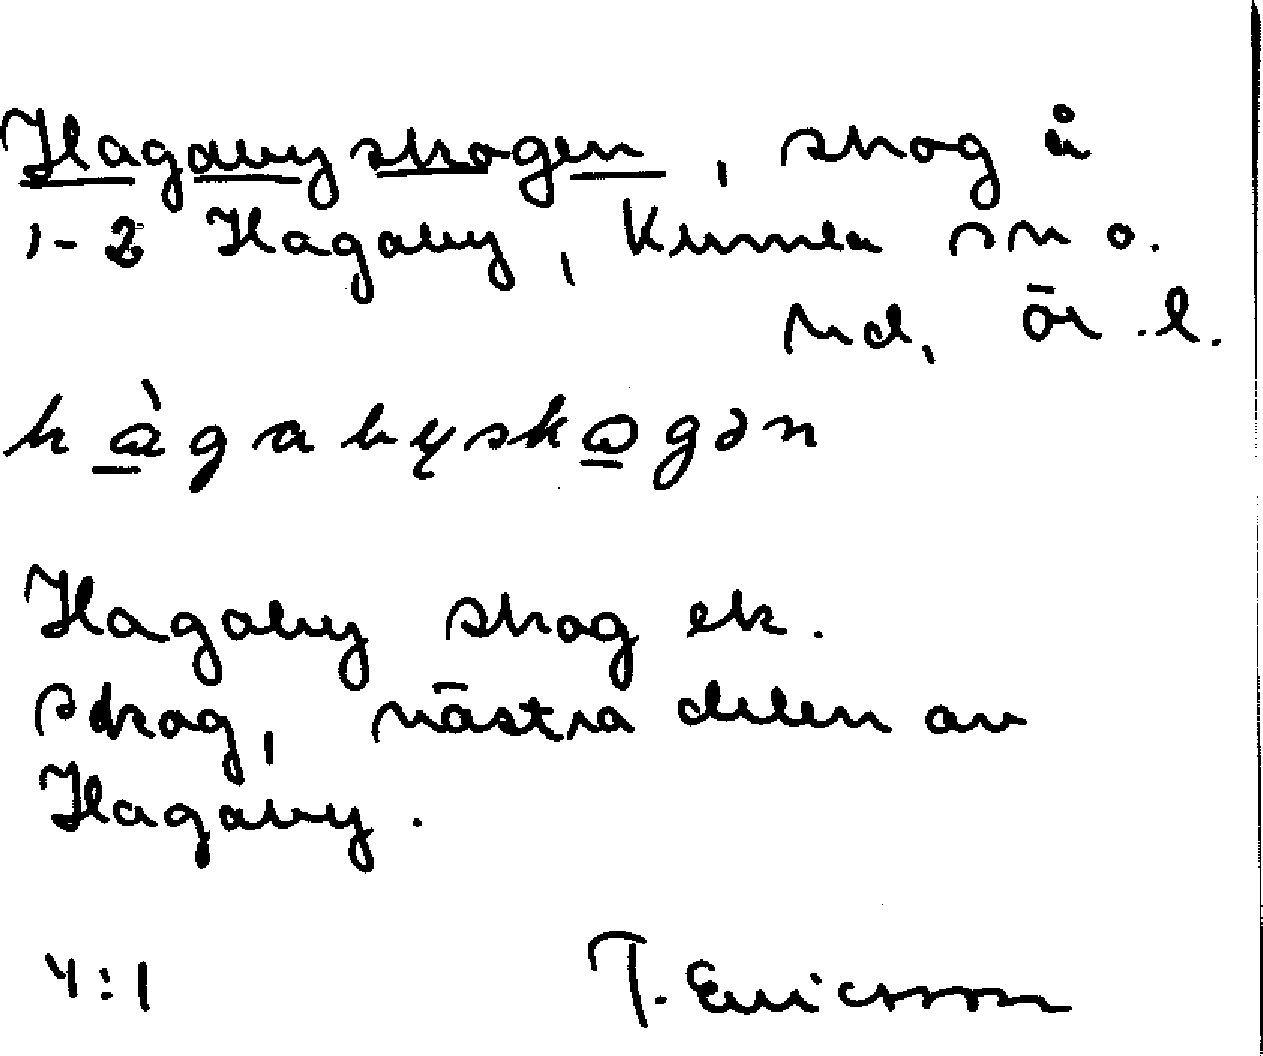 Hagabyskogen, skog å
1-2 Hagaby, Kumla sn o.
hd, Ör. l.
hàgabyskogən
Hagaby skog ek.
skog, västra delen av
Hagaby.
4:1 T. Ericsson